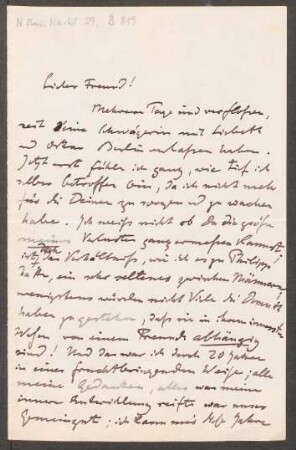 Lieber Freund!
Mehrere Tage sind verflossen,
seit Deine Schwägerin mit Lisbeth
und Oskar Berlin verlassen haben.
Jetzt erst fühle ich ganz, wie tief ich
selber betroffen bin, da ich nicht mehr
für die Deinen zu sorgen und zu wachen
habe. Ich weiss nicht ob Du die Größe
meines Verlustes ganz ermessen kannst!
ist, das Verhältniss, wie ich es zu Philipp
hatte, ein sehr seltenes zwischen Männern!
wenigstens würden nicht Viele den
haben zu gestehen, dass sie in ihrem innersten
Wesen von einem Freunde abhängig
sind! Und das war ich durch 20 Jahre
in einer fruchtbringenden Weise; alle
meine Gedanken, alles was meine
innere Entwicklung reifte war unser
Gemeingut; ich kann mir Jahre